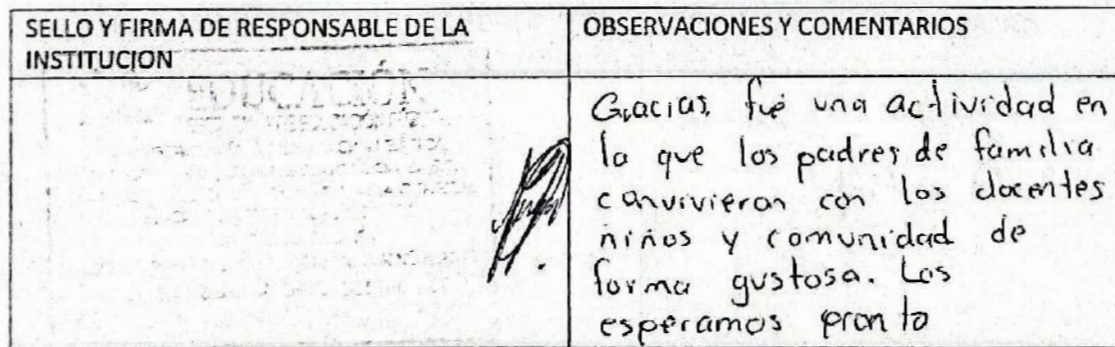 SELLO Y FIRMA DE RESPONSABLE DE LA
INSTITUCION
EDUCACIÓN
OBSERVACIONES Y COMENTARIOS
Gracias, fué una actividad en
la que los padres de familia
convivieron con los docentes
niños y comunidad de
forma gustosa. Los
esperamos pronto